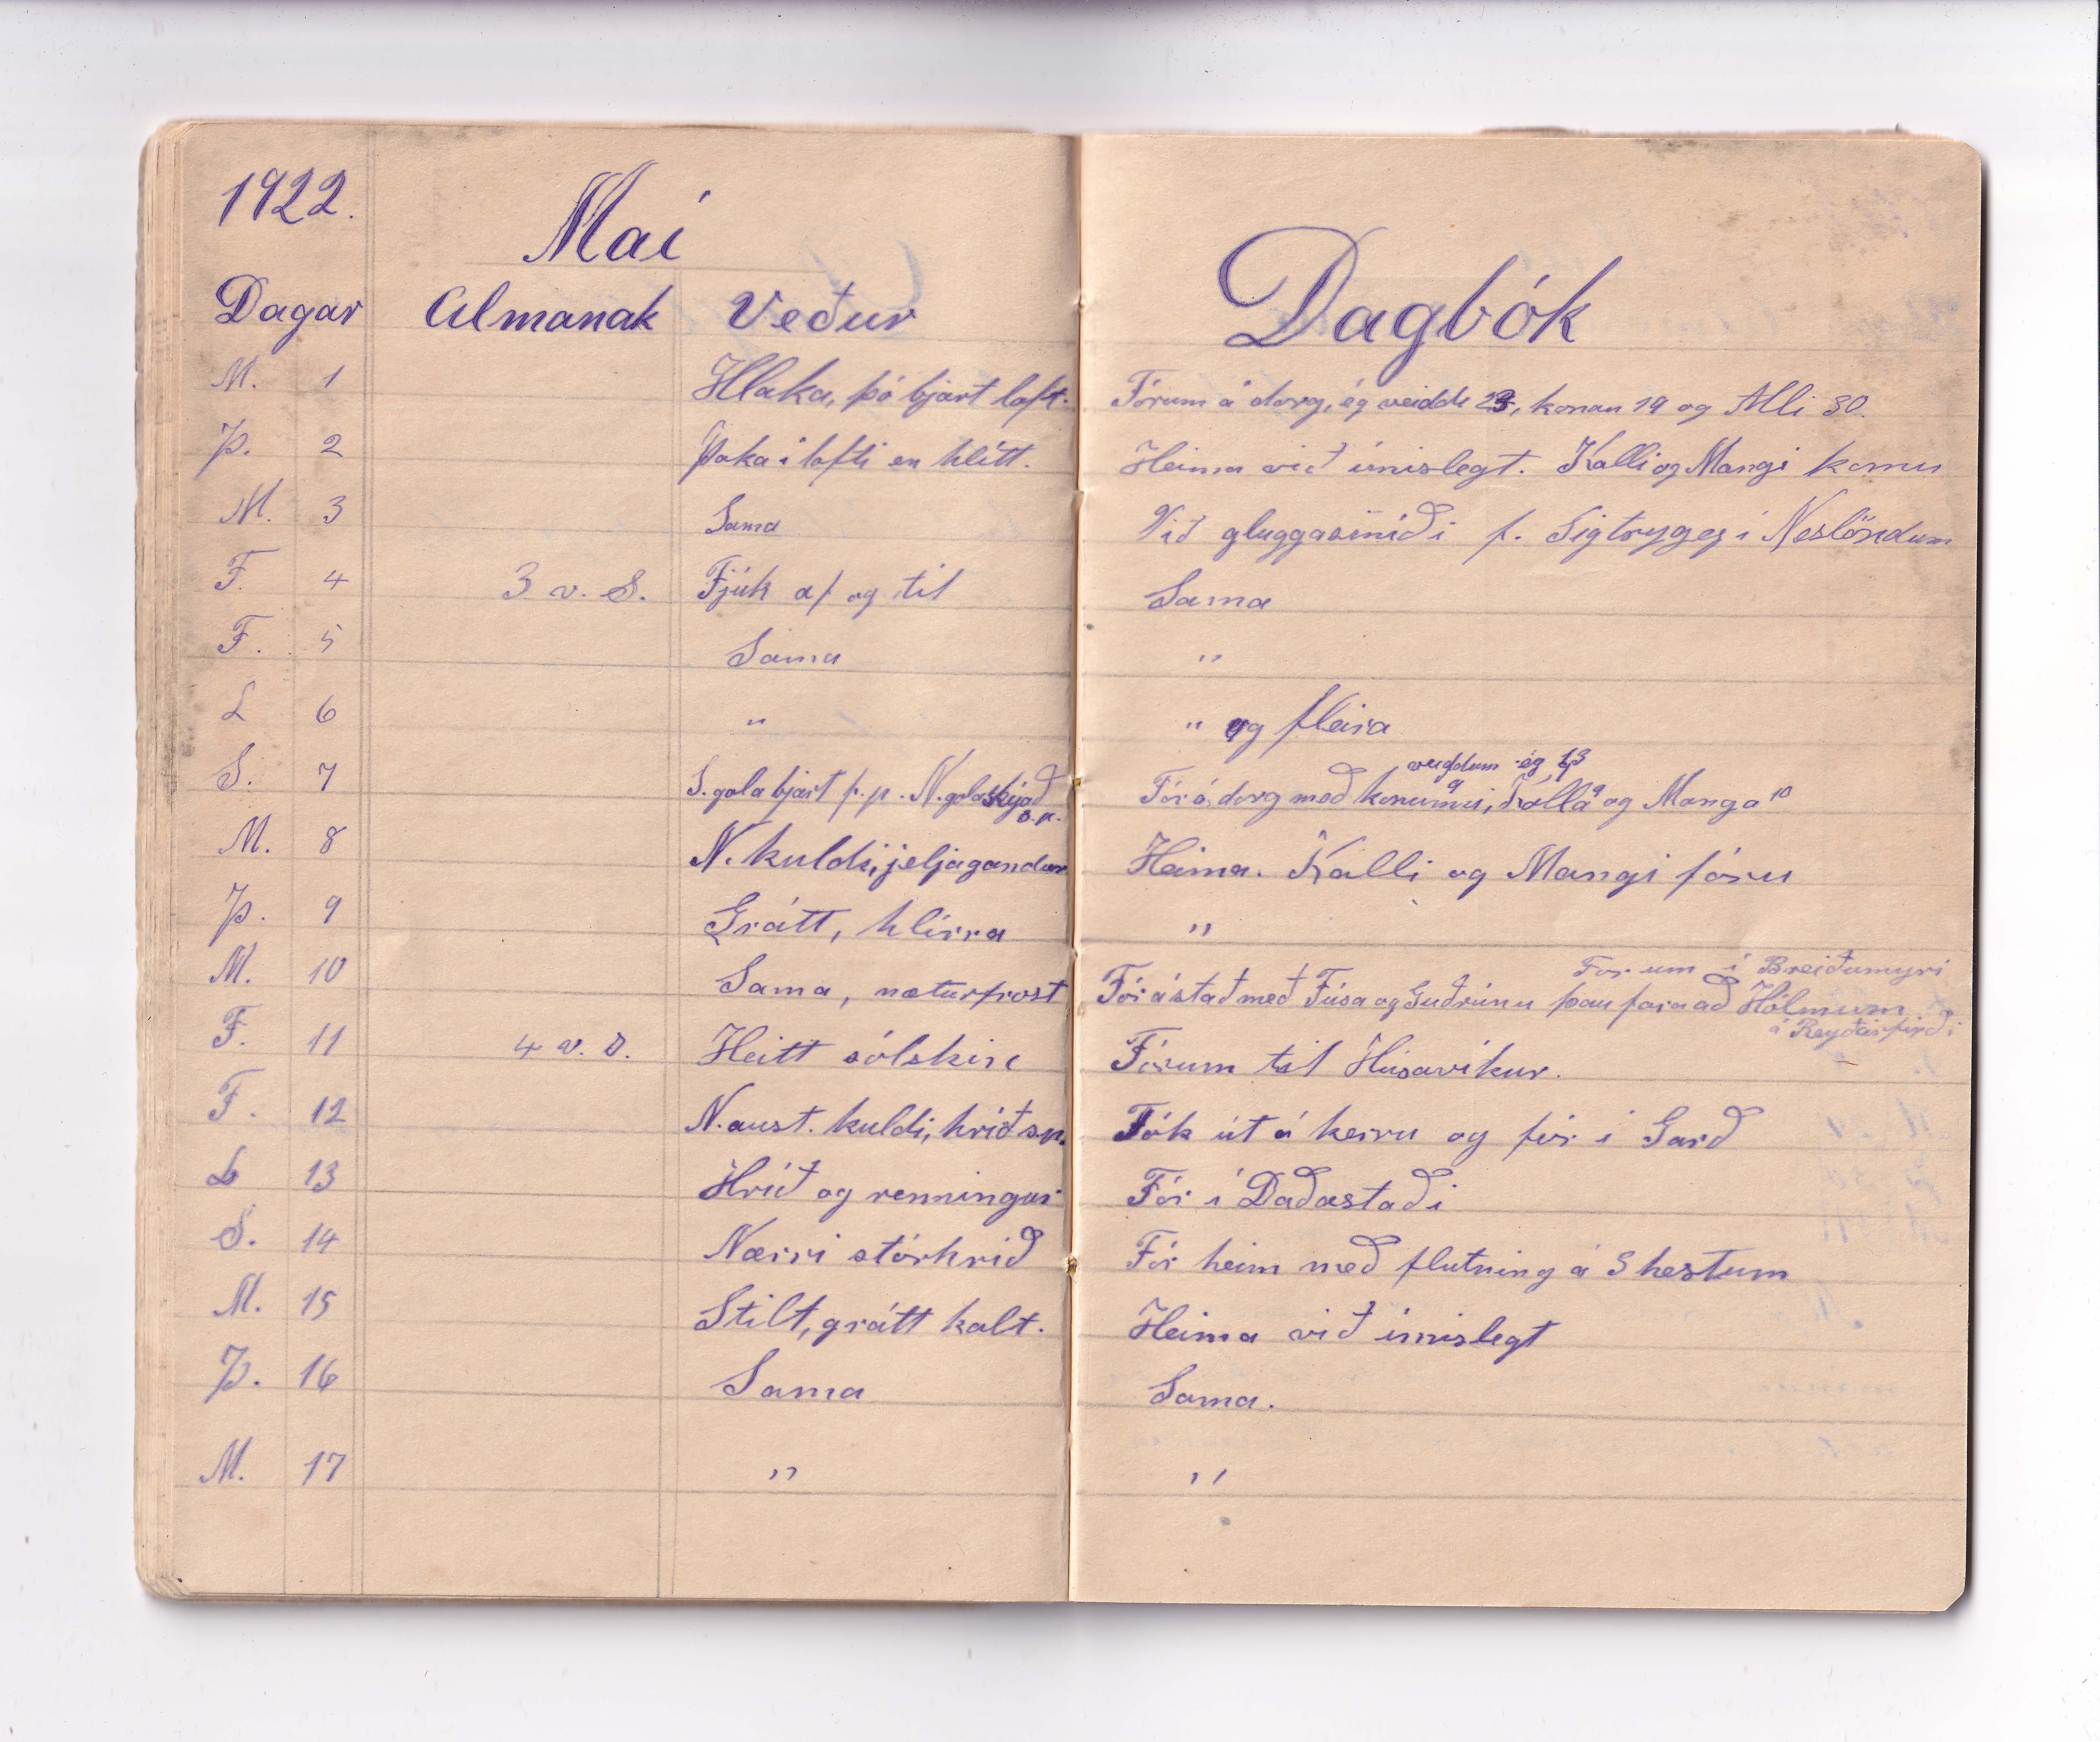 1922.
Mai
Dagar Almanak Veður
Dagbók
M. 1 Hlaka, þó bjart loft. Fórum á dorg, ég veiddi 23, konan 19 og Alli 30.
Þ. 2 Þoka í lofti en hlítt. Heima við ímislegt. Kalli og Mangi komu
M. 3 Sama Við gluggasmíði f. Sigtrygg í Neslöndum
F. 4 3 v. S. Fjúk af og til Sama
F. 5 Sama "
L 6 " " og fleira
veiddum ég 13
S. 7 S. gola bjart f.p. N. gola skýjað Fór á dorg með konunni, 9 Kalla 9 og Manga 10
s.p.
M. 8 N. kuldi, jeljagandur Heima. Kalli og Mangi fóru
Þ. 9 Grátt, hlírra "
Forum í Breiðumyri
M. 10 Sama, næturfrost Fór á stað með Fúsa og Guðrúnu þau fara að Hólmum
á Reyðarfirði
F. 11 4 v. S. Heitt sólskin Fórum til Húsavíkur.
F. 12 N. aust. kuldi, hríð s.p. Tók út á kerru og fór í Garð
L 13 Hríð og renningur Fór í Daðastaði
S. 14 Nærri stórhríð Fór heim með flutning á 3 hestum
M. 15 Stilt, grátt kalt. Heima við ímislegt
Þ. 16 Sama Sama.
M. 17 " "